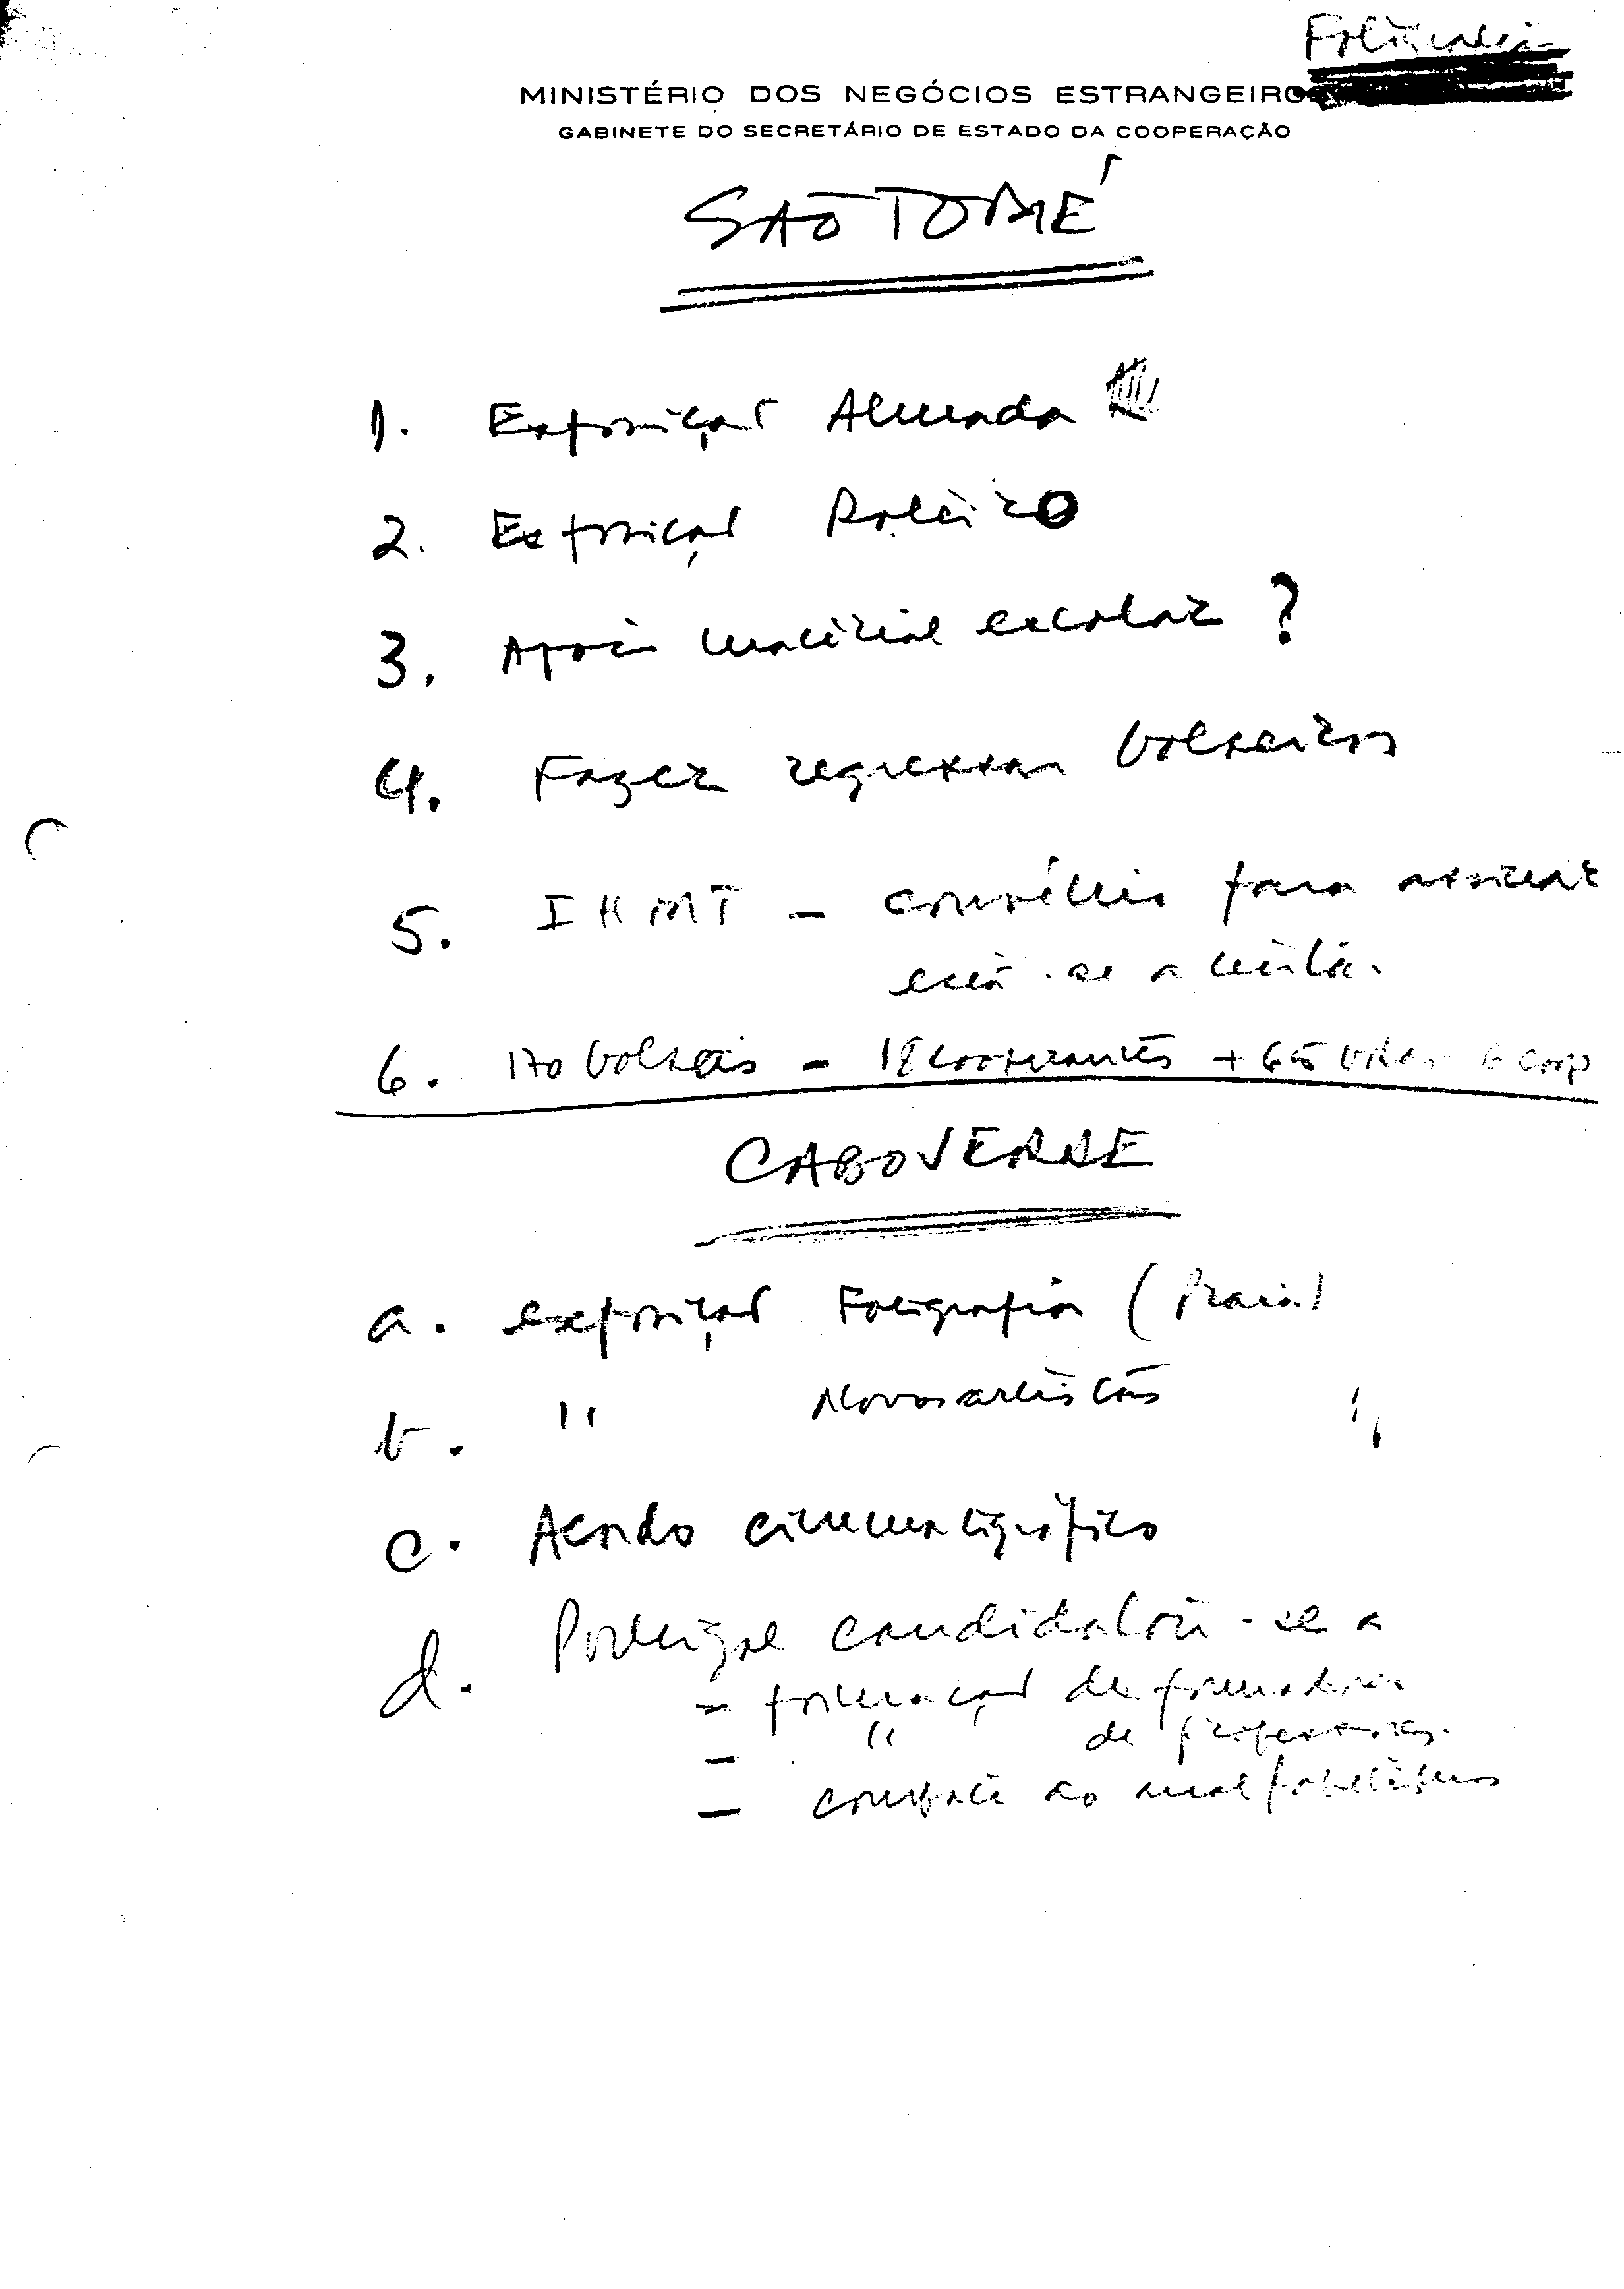 Fotocopia
MINISTÉRIO DOS NEGÓCIOS ESTRANGEIROS
GABINETE DO SECRETÁRIO DE ESTADO DA COOPERAÇÃO
SÃO TOMÉ
1. Exposição Almada
2. Exposição Roteiro
3. Apoio material escolar ?
4. Fazer regressar bolseiros
5. IHMT - convénio para assinar
está-se a
6. 170 bolseiros - 18 cooperantes + 65 6 coop
CABO VERDE
a. exposição Fotografia (Praia)
b. " Novos artistas "
c. Acordo cinematográfico
d. Portugal candidatou-se a
- formação de formadores
- " de professores.
- combate ao analfabetismo